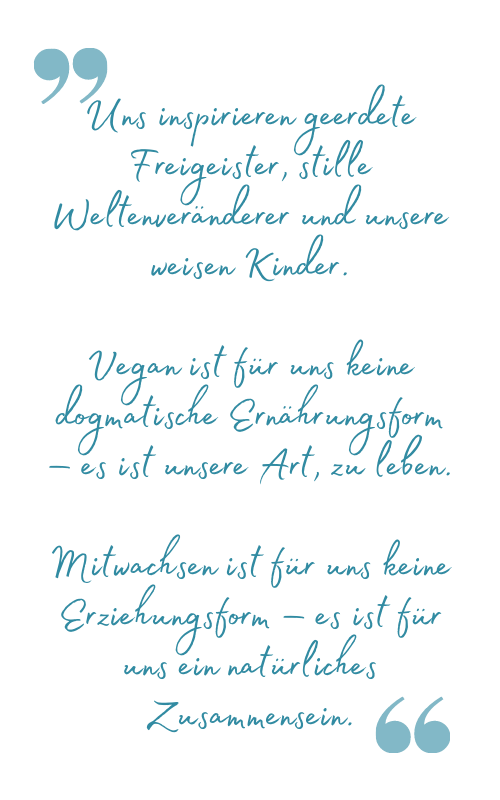 ”
Uns inspirieren geerdete
Freigeister, stille
Weltenveränderer und unsere
weisen Kinder.
Vegan ist für uns keine
dogmatische Ernährungsform
– es ist unsere Art, zu leben.
Mitwachsen ist für uns keine
Erziehungsform – es ist für
uns ein natürliches
Zusammensein.
“